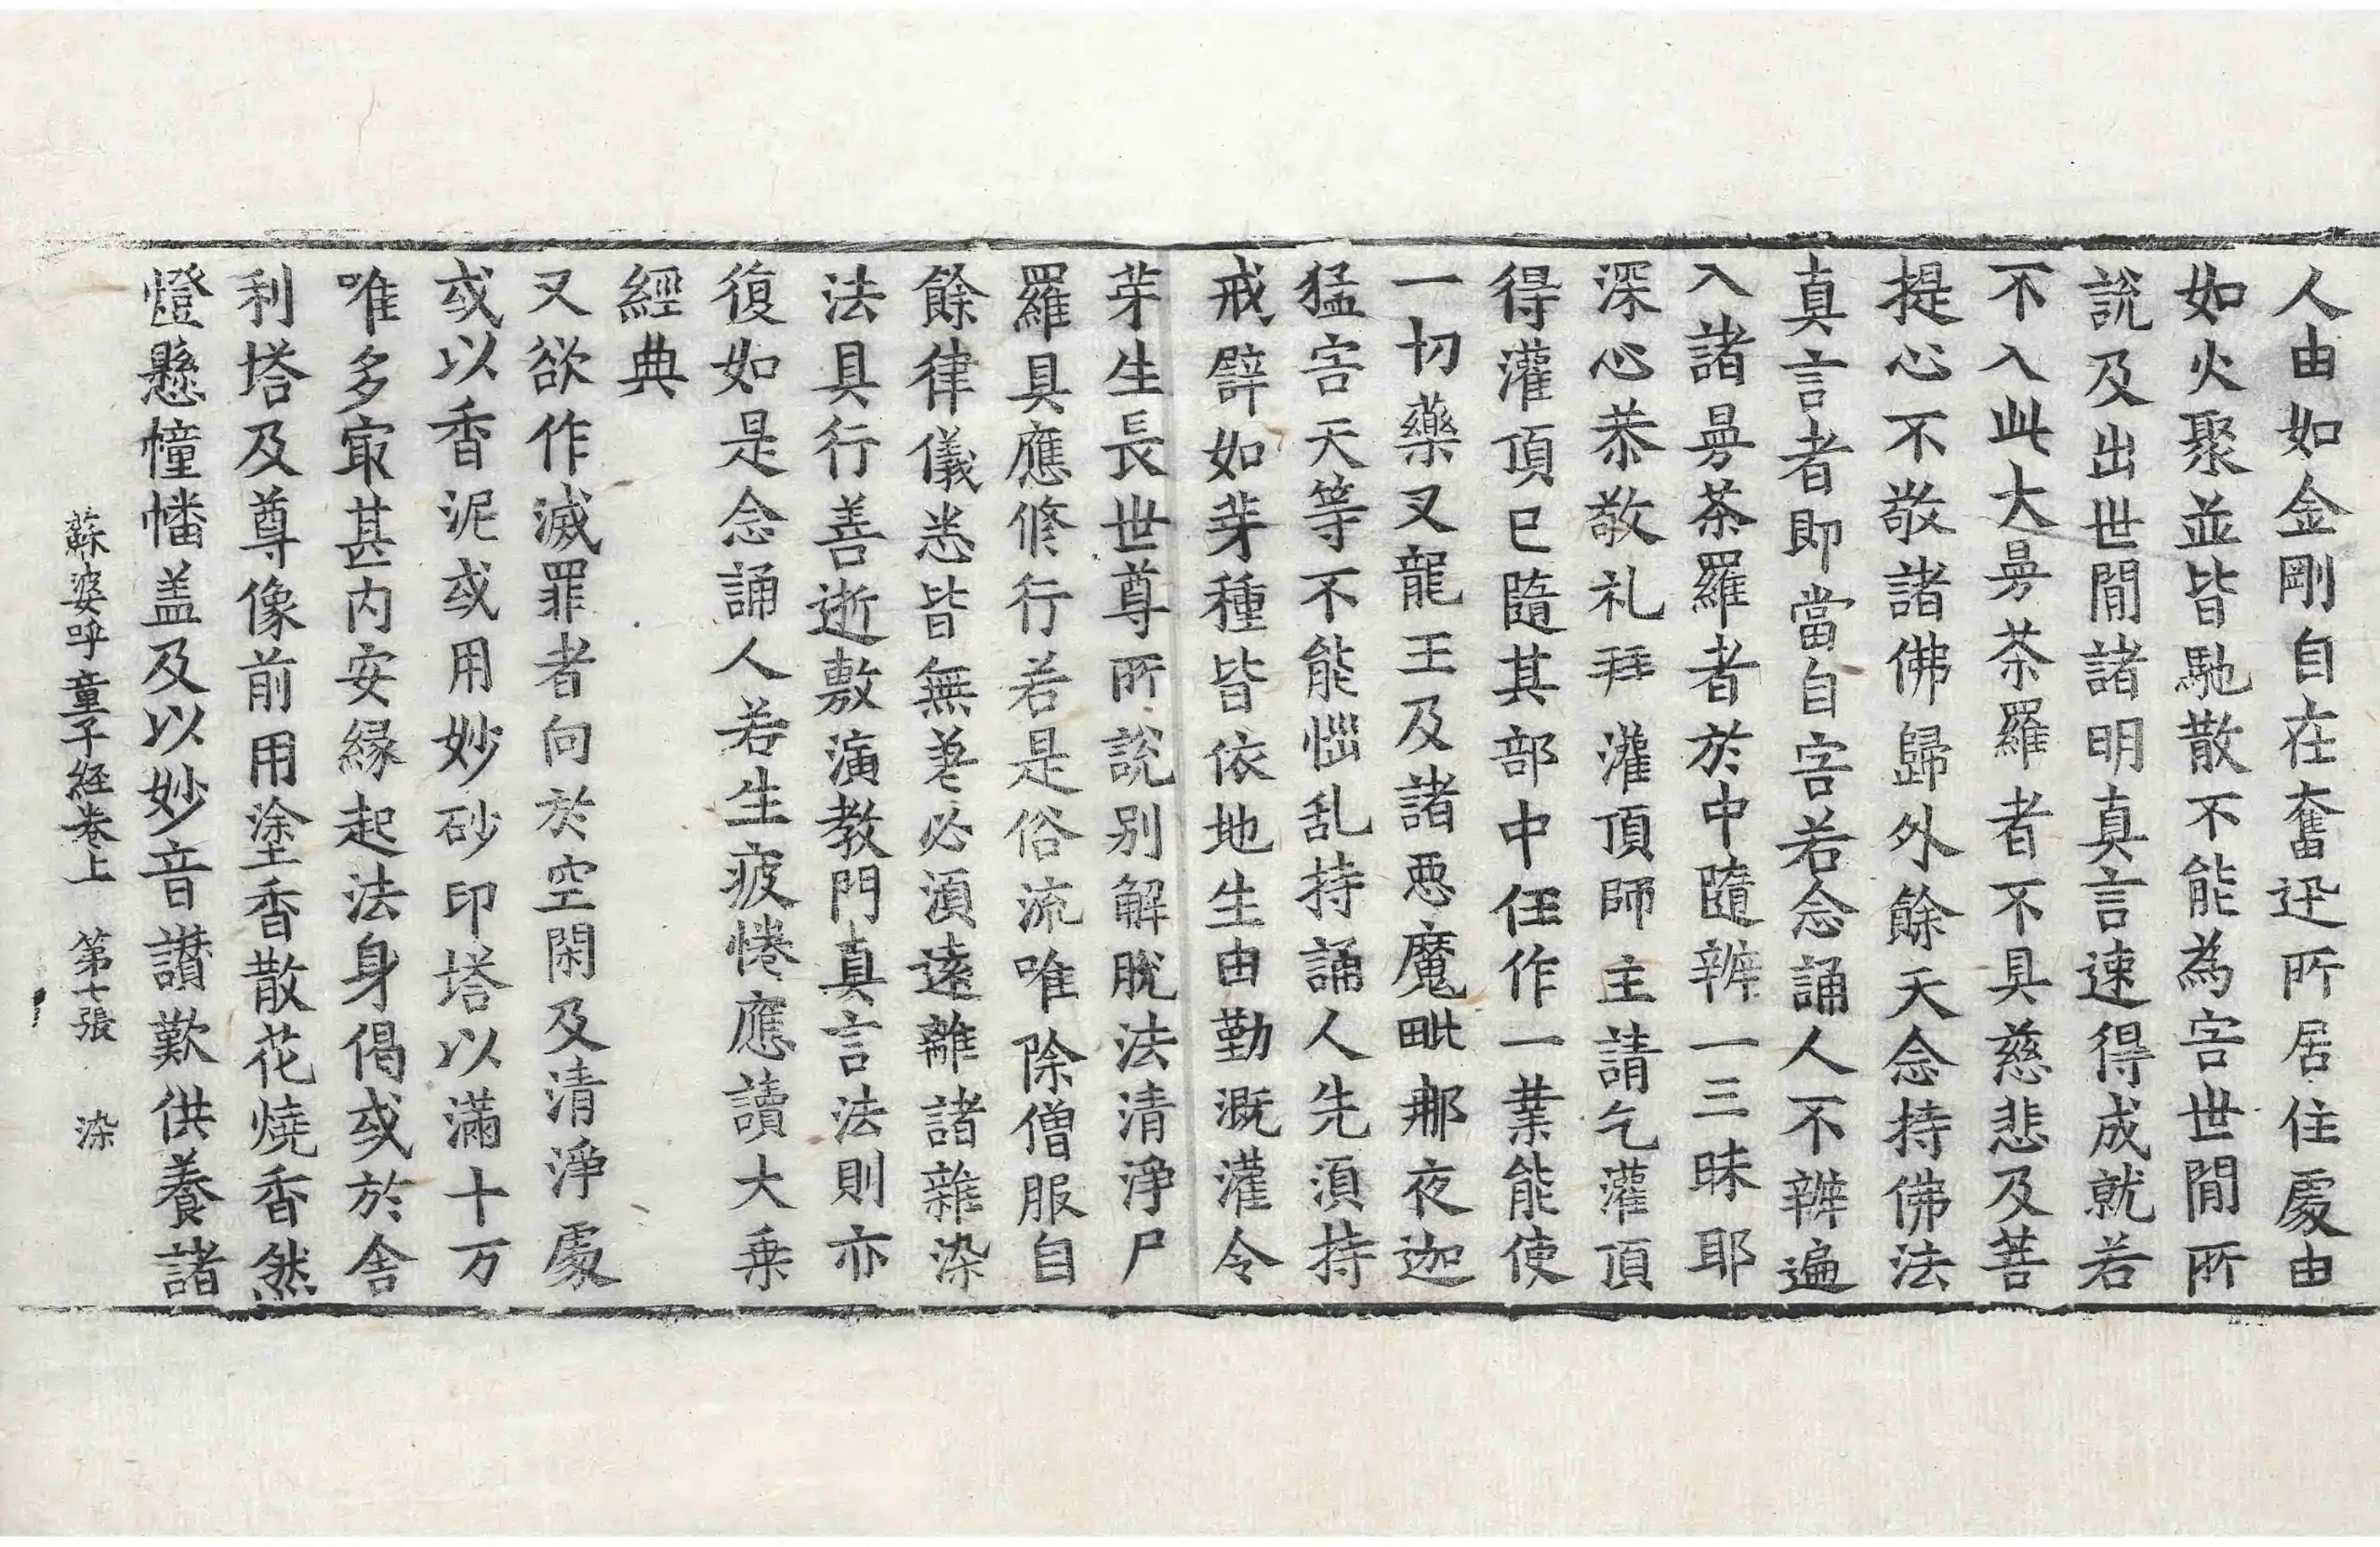 人由如金剛自在奮迅所居住處由
如火聚並皆馳散不能為害世間所
說及出世間諸明真言速得成就若
不入此大曼茶羅者不具慈悲及菩
提心不敬諸佛歸外餘天念持佛法
真言者即當自害若念誦人不辨遍
入諸曼茶羅者於中隨辨一三昧耶
深心恭敬礼拜灌頂師主請乞灌頂
得灌頂已隨其部中任作一業能使
一切藥叉龍王及諸悪魔毗那夜迦
猛害天等不能惱乱持誦人先湏持
戒譬如芽種皆依地生由勤溉灌令
芽生長世尊所說別解脫法清淨尸
羅具應修行若是俗流唯除僧服自
餘律儀悉皆無差必湏遠離諸雜染
法具行善逝敷演教門真言法則亦
復如是念誦人若生疲惓應讀大乗
經典
又欲作滅罪者向於空閑及清淨處
或以香泥或用妙砂印塔以滿十万
唯多冣甚内安縁起法身偈或於舍
利塔及尊像前用塗香散花燒香然
燈懸幢幡盖及以妙音讃歎供養諸
蘇婆呼童子経卷上　第七張　染